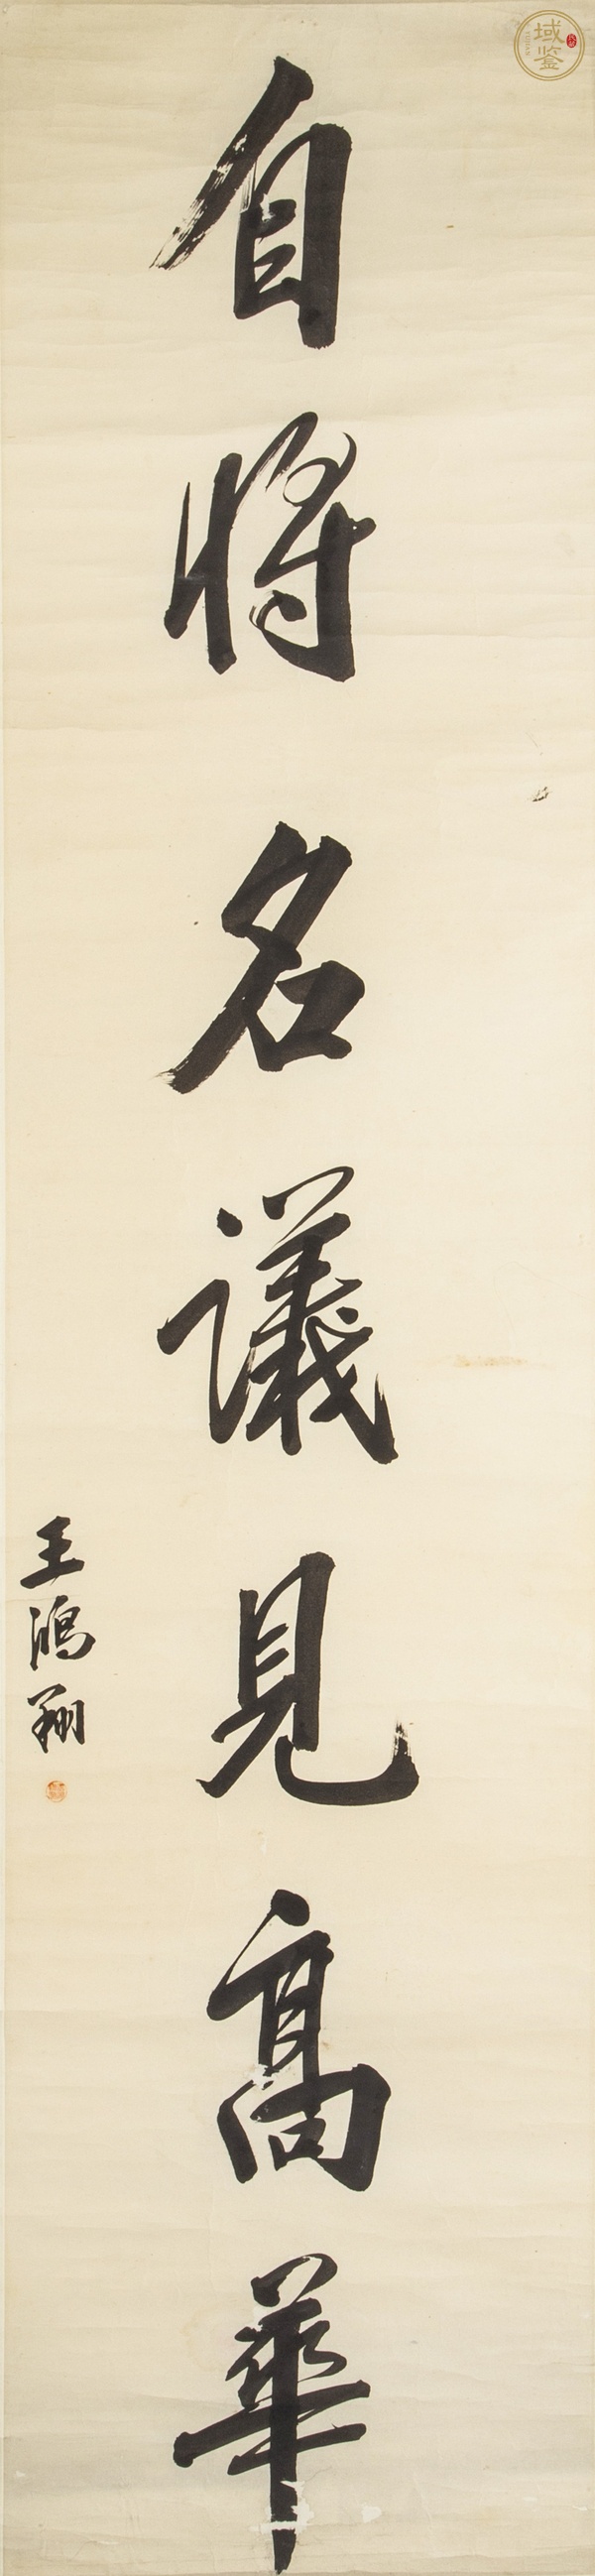 自将名議見高華
王鴻翔
域鉴